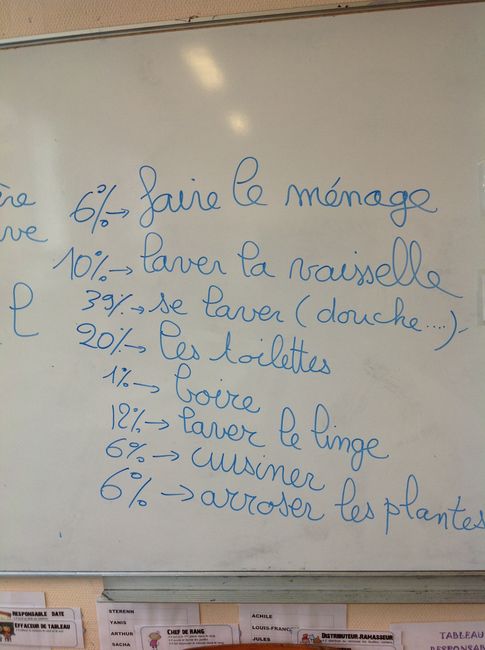 6% → faire le ménage
10% → laver la vaisselle
39% → se laver (douche....)
20% → les toilettes
1% → boire
12% → laver le linge
6% → cuisiner
6% → arroser les plantes
RESPONSABLE DATE
EFFACEUR DE TABLEAU
STERENN
YANIS
ARTHUR
SACHA
CHEF DE RANG
ACHILE
JULES
DISTRIBUTEUR-RAMASSEUR
TABLEAU